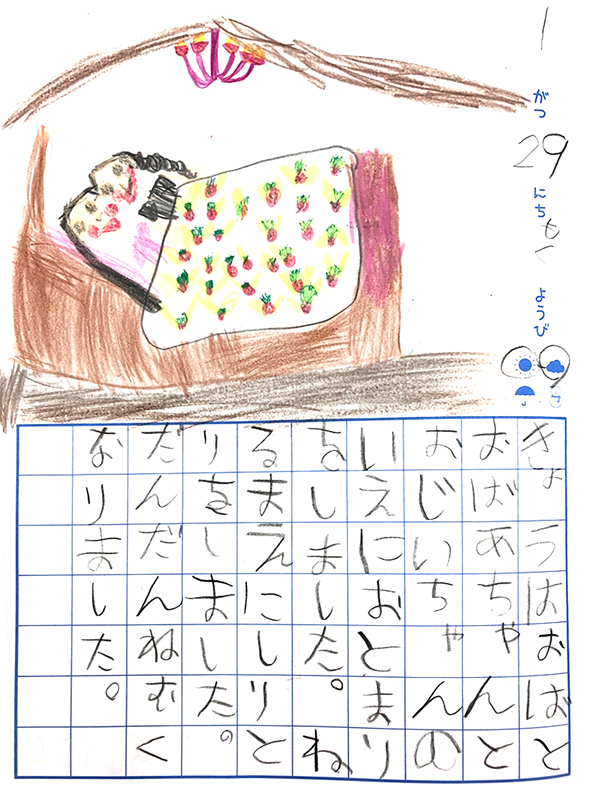 1がつ29にちもくようび
きょうはおばと
おばあちゃんと
おじいちゃんの
いえにおとまり
をしました。ね
るまえにしりと
りをしました。
だんだんねむく
なりました。